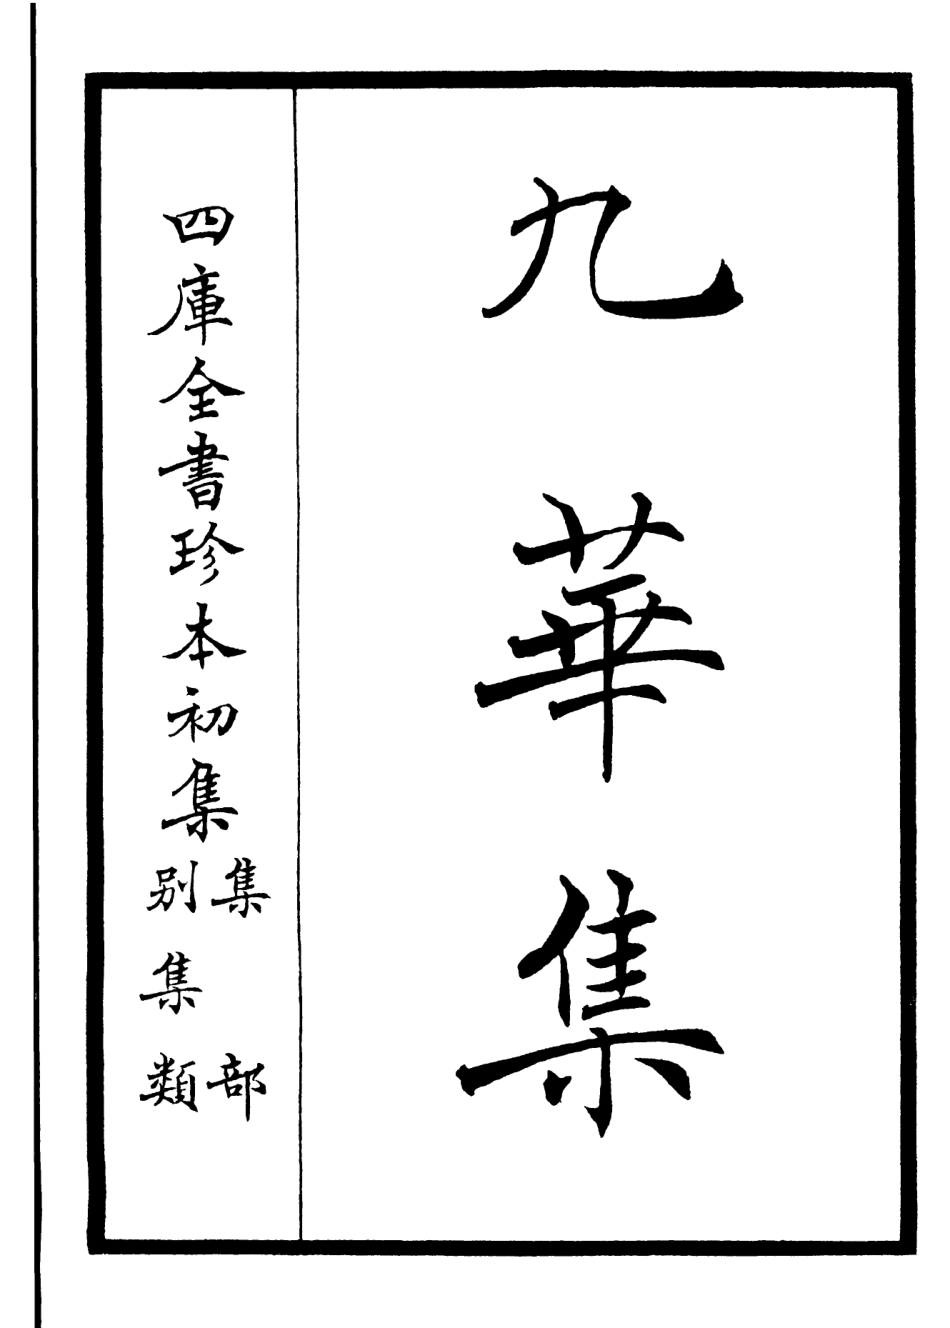 九華集
四庫全書珍本初集
集部
別集類